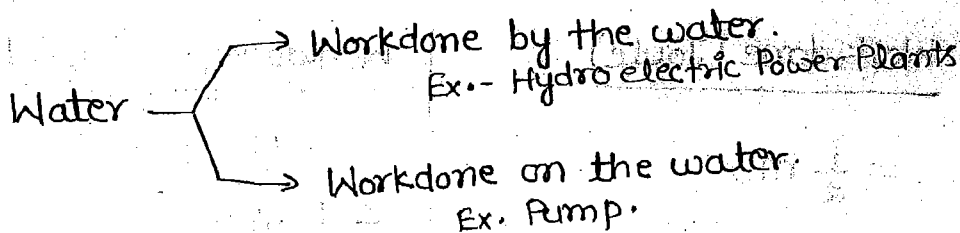 Workdone by the water.
Ex.- Hydro electric Power Plants
Water
Workdone on the water.
Ex. Pump.